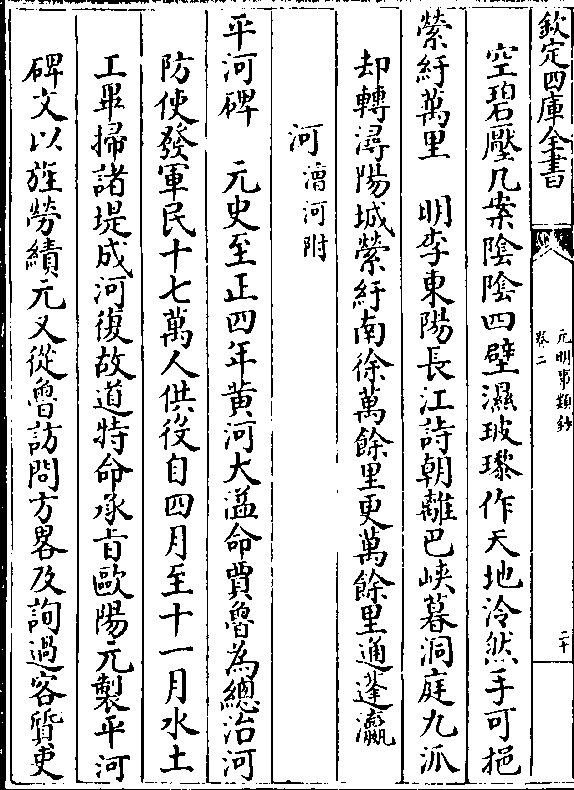 欽定四庫全書
元明事類鈔
卷二
二十
空碧壓几案陰陰四壁濕玻瓈作天地泠然手可挹
縈紆萬里　明李東陽長江詩朝離巴峽暮洞庭九派
却轉潯陽城縈紆南徐萬餘里更萬餘里通蓬瀛
河漕河附
平河碑　元史至正四年黄河大溢命賈魯為總治河
防使發軍民十七萬人供役自四月至十一月水土
工畢掃諸堤成河復故道特命承㫖歐陽元製平河
碑文以旌勞績元又從魯訪問方畧及詢過客質吏